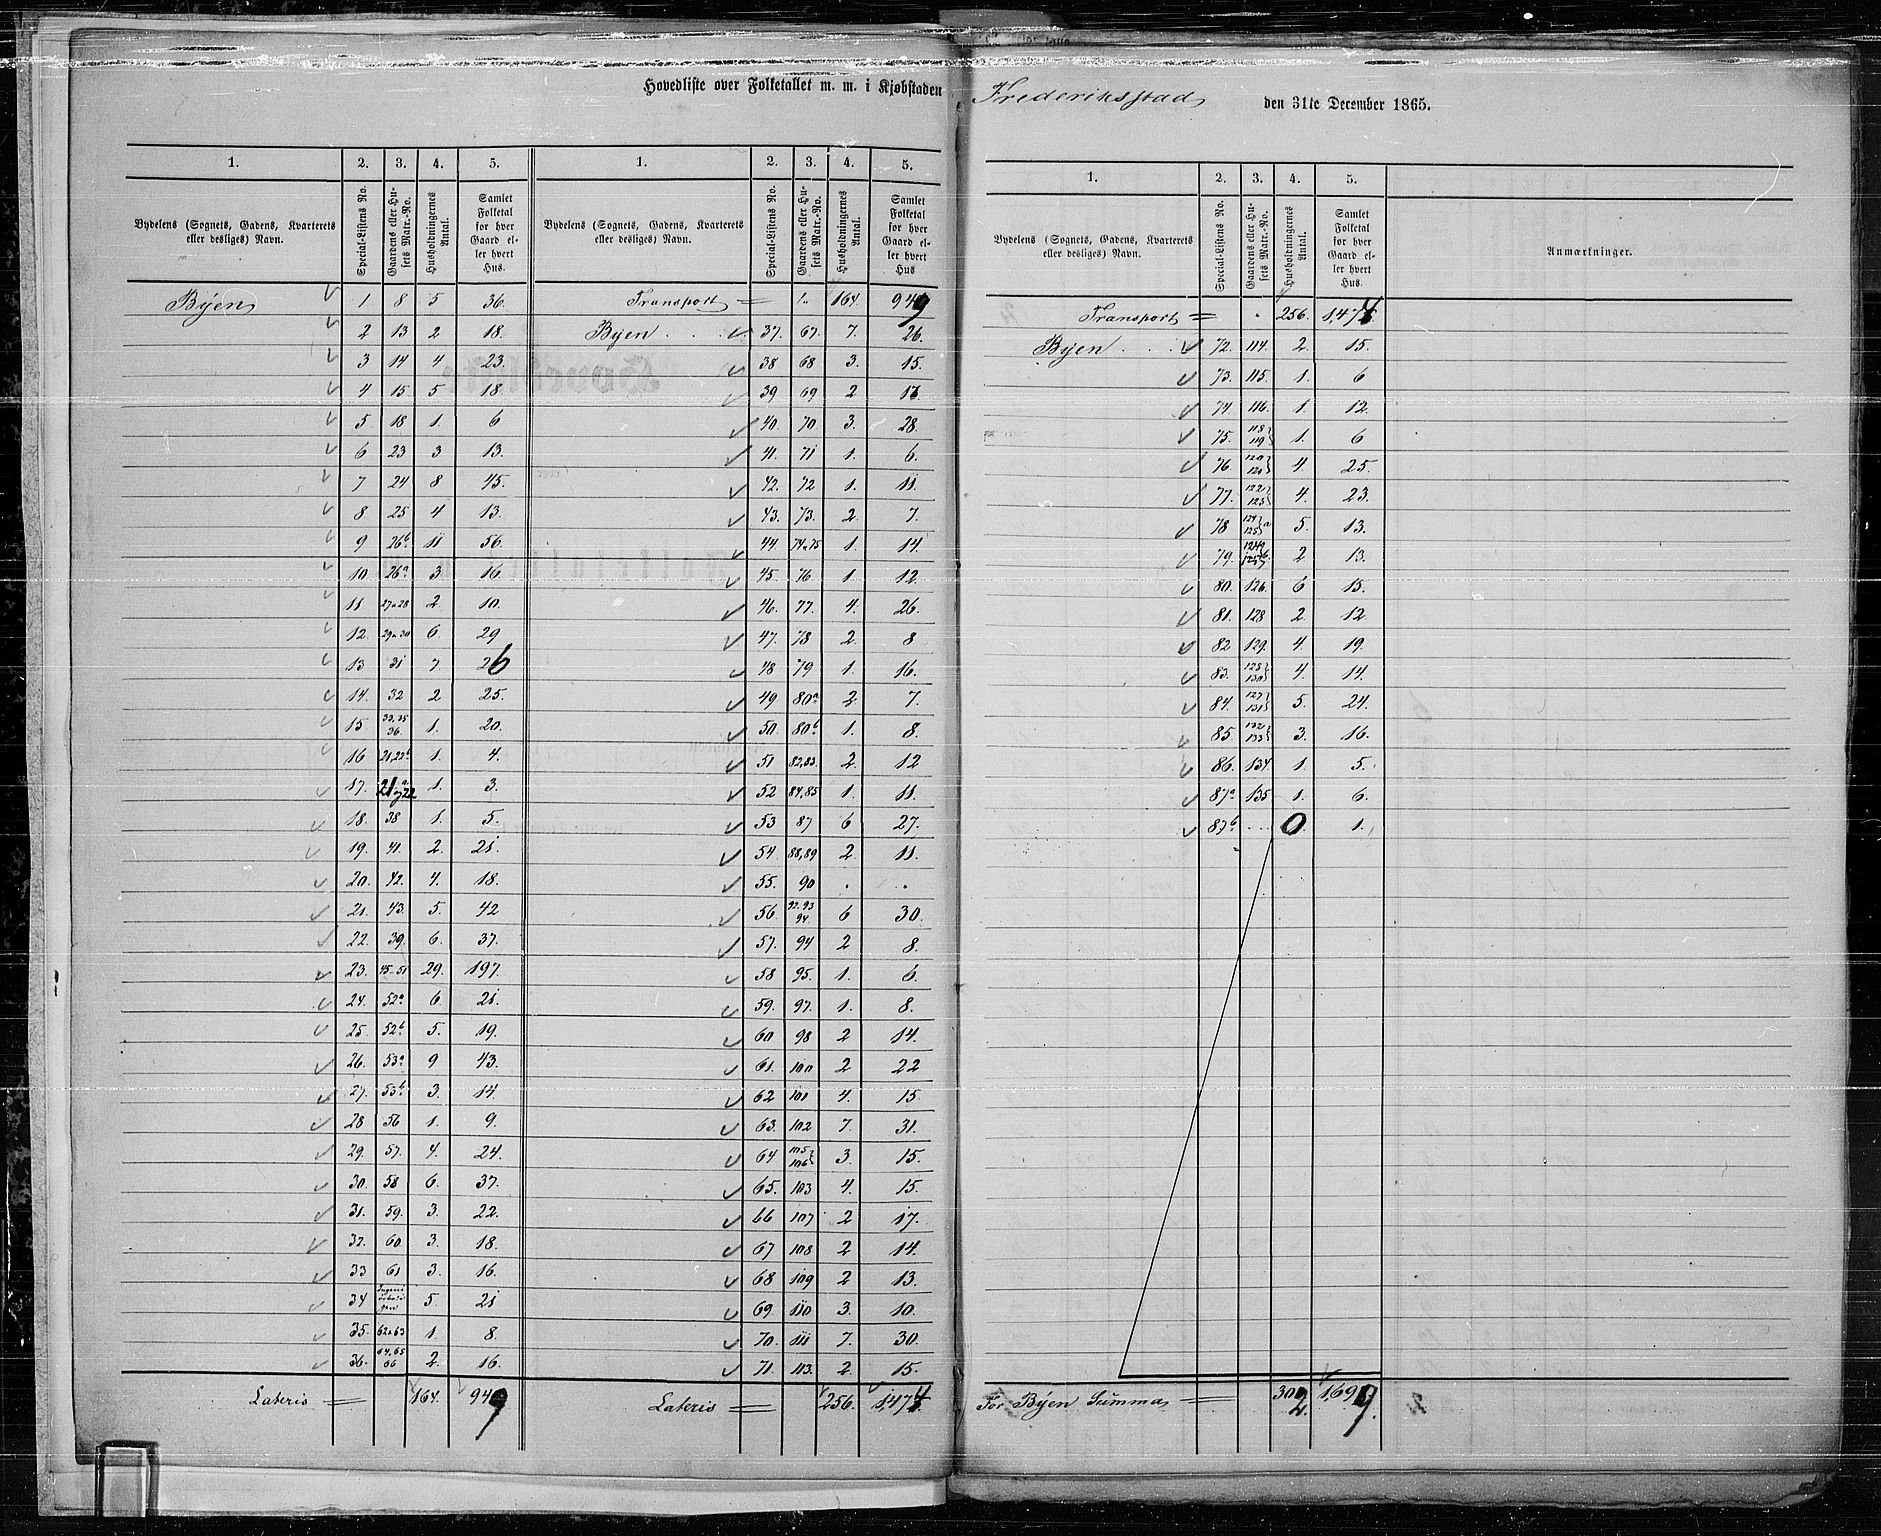 Hovedliste over Folketallet m. m. i Kjøbstaden Frederiksstad den 31te December 1865.
1. 2. 3. 4. 5. 1. 2. 3. 4. 5.
Bydelens (Sognets, Gadens, Kvarterets eller desliges) Navn. Special-Listens No. Gaardens eller Husets Matr.-No. Husholdningernes Antal. Samlet Folketal for hver Gaard eller hvert Hus. Bydelens (Sognets, Gadens, Kvarterets eller desliges) Navn. Special-Listens No. Gaardens eller Husets Matr.-No. Husholdningernes Antal. Samlet Folketal for hver Gaard eller hvert Hus
Byen 1 8 5 36.
2 13 2 18.
3 14 4 23.
4 15 5 18.
5 18 1. 6
6 23 3 13.
7 24 8 45.
8. 25 4 13.
9 26b 11 56.
10 26a 3 16.
11 27 n 28 2. 10.
12. 29 n 30 6. 29
13 31 7. 26
14. 32 2 25.
15 33, 35 36. 1. 20.
16 21, 22b 1. 4.
17. 21a 22 1. 3.
18. 38 1. 5.
19. 41. 2. 21.
20. 42. 4. 18.
21. 43. 5. 42
22. 39. 6. 37.
23. 45-51 29. 197.
24. 52a 6. 21.
25. 52b 5. 19.
26. 53a 9 43.
27. 53b 3. 14.
28 56 1. 9.
29. 57. 4. 24.
30. 58 6. 37.
31. 59. 3. 22.
32. 60. 3. 18.
33 61 3. 16.
34 5. 21
35. 62 n 63 1. 8.
36. 64, 65 66 2. 16.
Lateris = 164. 949
Transport = 164. 949
Byen . . . 37. 67. 7. 26.
38 68 3. 15.
39 69 2 17.
40. 70 3. 28.
41. 71 1. 6.
42. 72 1. 11.
43. 73. 2. 7.
44. 74 n 75 1. 14.
45. 76 1. 12.
46. 77. 4. 26.
47. 78 2. 8
48 79 1. 16.
49 80a 2. 7.
50. 80b 1. 8.
51 82, 83. 2. 12
52 84, 85 1. 11.
53 87 6 27.
54. 88, 89 2. 11.
55. 90 . .
56. 92. 93 94. 6 30.
57. 94 2 8.
58 95. 1. 6.
59. 97. 1. 8.
60 98 2 14.
61. 100 2 22
62 101 4. 15.
63. 102 7. 31.
64 105 106 3. 15.
65. 103 4. 15.
66 107 2 17.
67 108 2 14.
68 109 2 13.
69. 110 3. 10.
70. 111 7. 30.
71. 113. 2. 15.
Lateris = 256. 1,474
1. 2. 3. 4. 5.
Bydelens (Sognets, Gadens, Kvarterets eller desliges) Navn. Special-Listens No. Gaardens eller Husets Matr.-No. Husholdningernes Antal. Samlet Folketal for hver Gaard eller hvert Hus. Anmærkninger.
Transport = . 256. 1,474
Byen . . . 72. 114. 2. 15.
73. 115. 1. 6
74. 116. 1. 12.
75. 118 119 1. 6
76. 120 121 4. 25.
77. 122 123 4. 23.
78 124 125 a 5. 13.
79. 2 13.
80. 126. 6 15.
81. 128 2. 12
82 129. 4. 19.
83. 128 130 4. 14.
84. 127 131 5. 24.
85. 132 133 3. 16.
86. 134 1. 5.
87a 135 1. 6.
87b . . . 0. 1.
For Byen Summa = 302. 1,697.